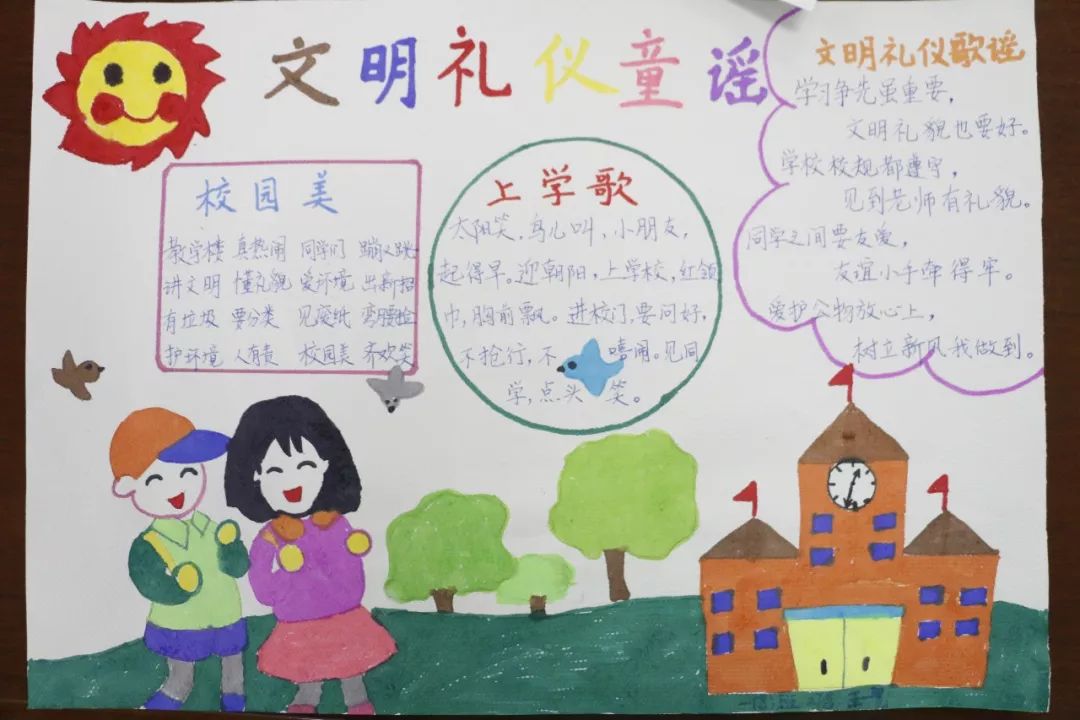 文明礼仪童谣
校园美
教学楼 真热闹 同学们 蹦又跳
讲文明 懂礼貌 爱环境 出新招
有垃圾 要分类 见废纸 弯腰捡
护环境 人有责 校园美 齐欢笑
上学歌
太阳笑，鸟儿叫，小朋友，
起得早。迎朝阳，上学校，红领
巾，胸前飘。进校门，要问好，
不抢行，不 嘻闹。见同
学，点头 笑。
文明礼仪歌谣
学习争先虽重要，
文明礼貌也要好。
学校校规都遵守，
见到老师有礼貌。
同学之间要友爱，
友谊小手牵得牢。
爱护公物放心上，
树立新风我做到。